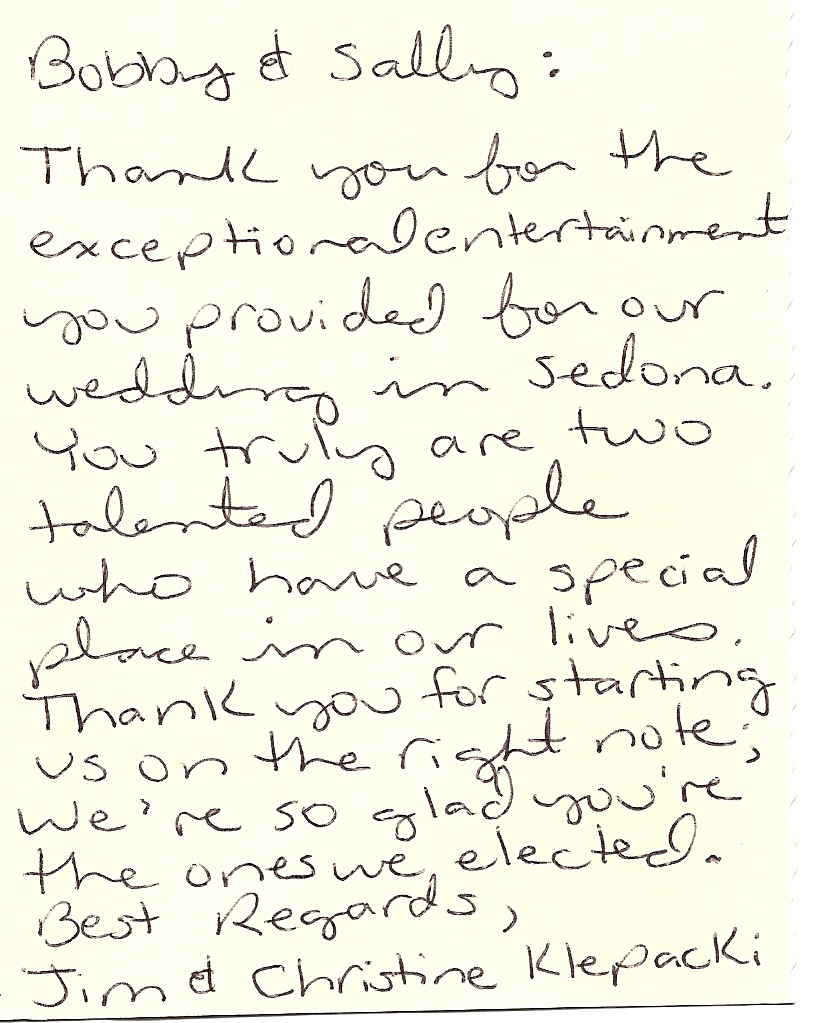 Bobby & Sally:
Thank you for the
exceptional entertainment
you provided for our
wedding in Sedona.
You truly are two
talented people
who have a special
place in our lives.
Thank you for starting
us on the right note;
We're so glad you're
the ones we elected.
Best Regards,
Jim & Christine Klepacki